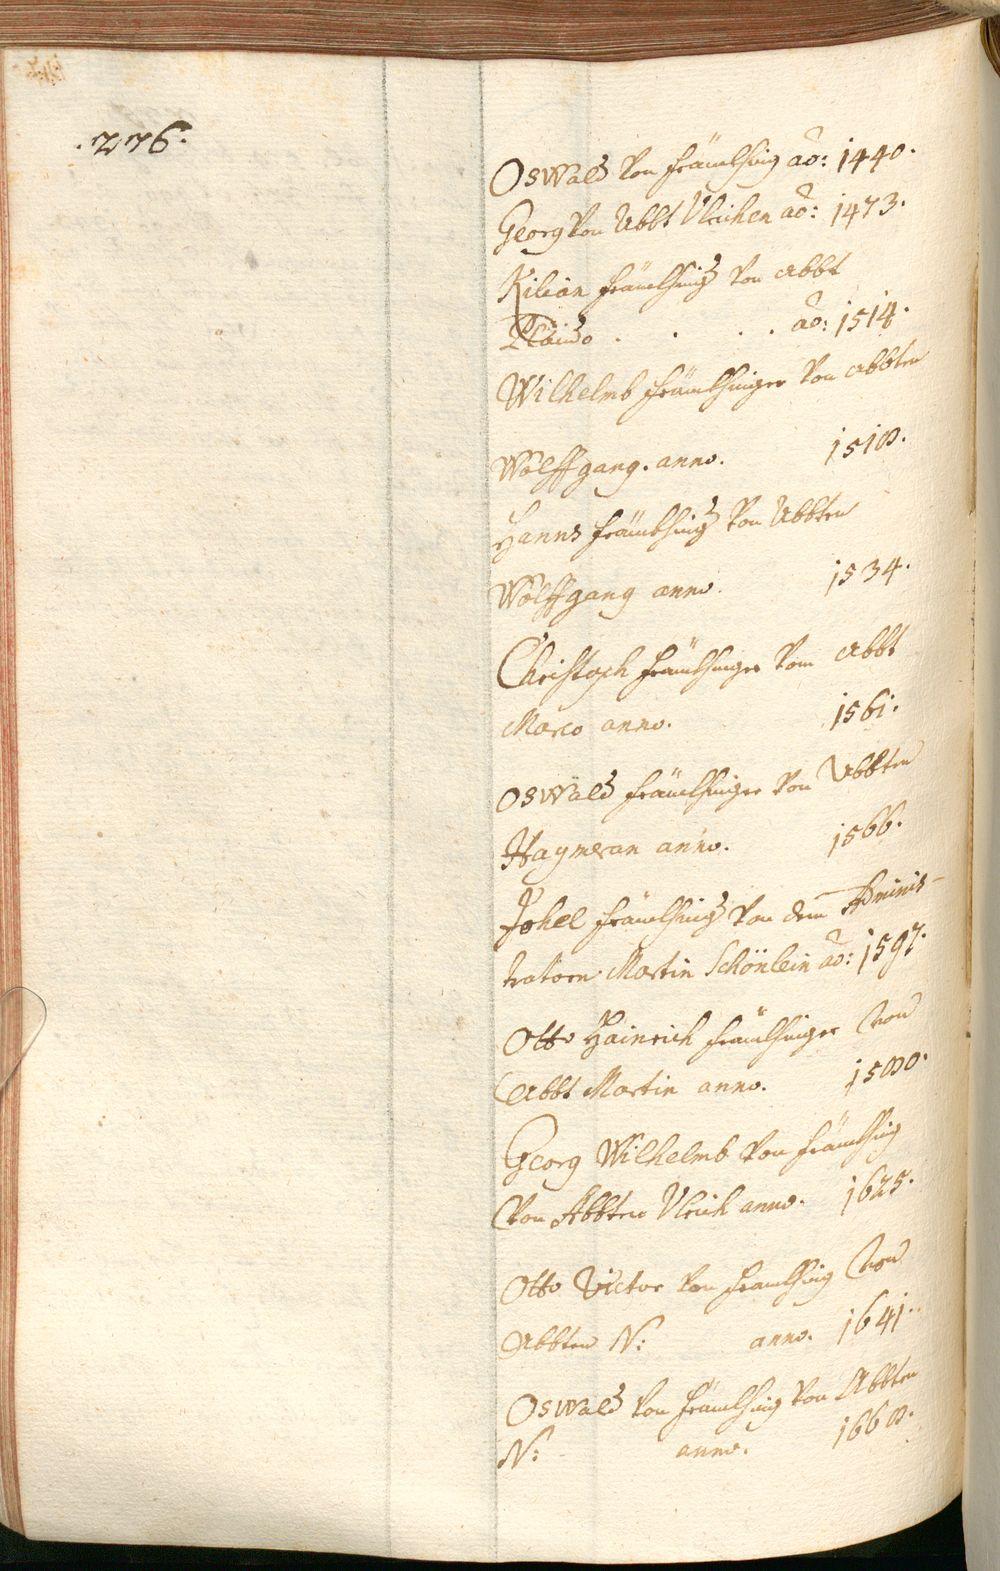 .276.
Oswald von Fräuelhing ão: 1440.
Georg von Abbt Ulrichen ão: 1473.
Kilian Fräuelhing von Abbt
Placido . . . . ão: 1514.
Wilhelmb Fräuelhinger von Abbten
Wolffgang. anno. 1518.
Hanns Fräuelhing von Abbten
Wolffgang anno. 1534.
Christoph Fräuelhinger vom Abbt
Marco anno. 1561.
Oswald Fräuelhinger von Abbten
Haymeran anno. 1566.
Johel Fräuelhing von dem Adminis-
tratorn Martin Schönlein ão: 1597.
Otto Hainrich Fräuelhinger von
Abbt Martin anno. 1580.
Georg Wilhelmb von Fräuelhing
von Abbten Ulrich anno. 1625.
Otto Victor von Fräuelhing von
Abbten N: anno. 1641.
Oswald von Fräuelhing von Abbten
N: anno. 1668.